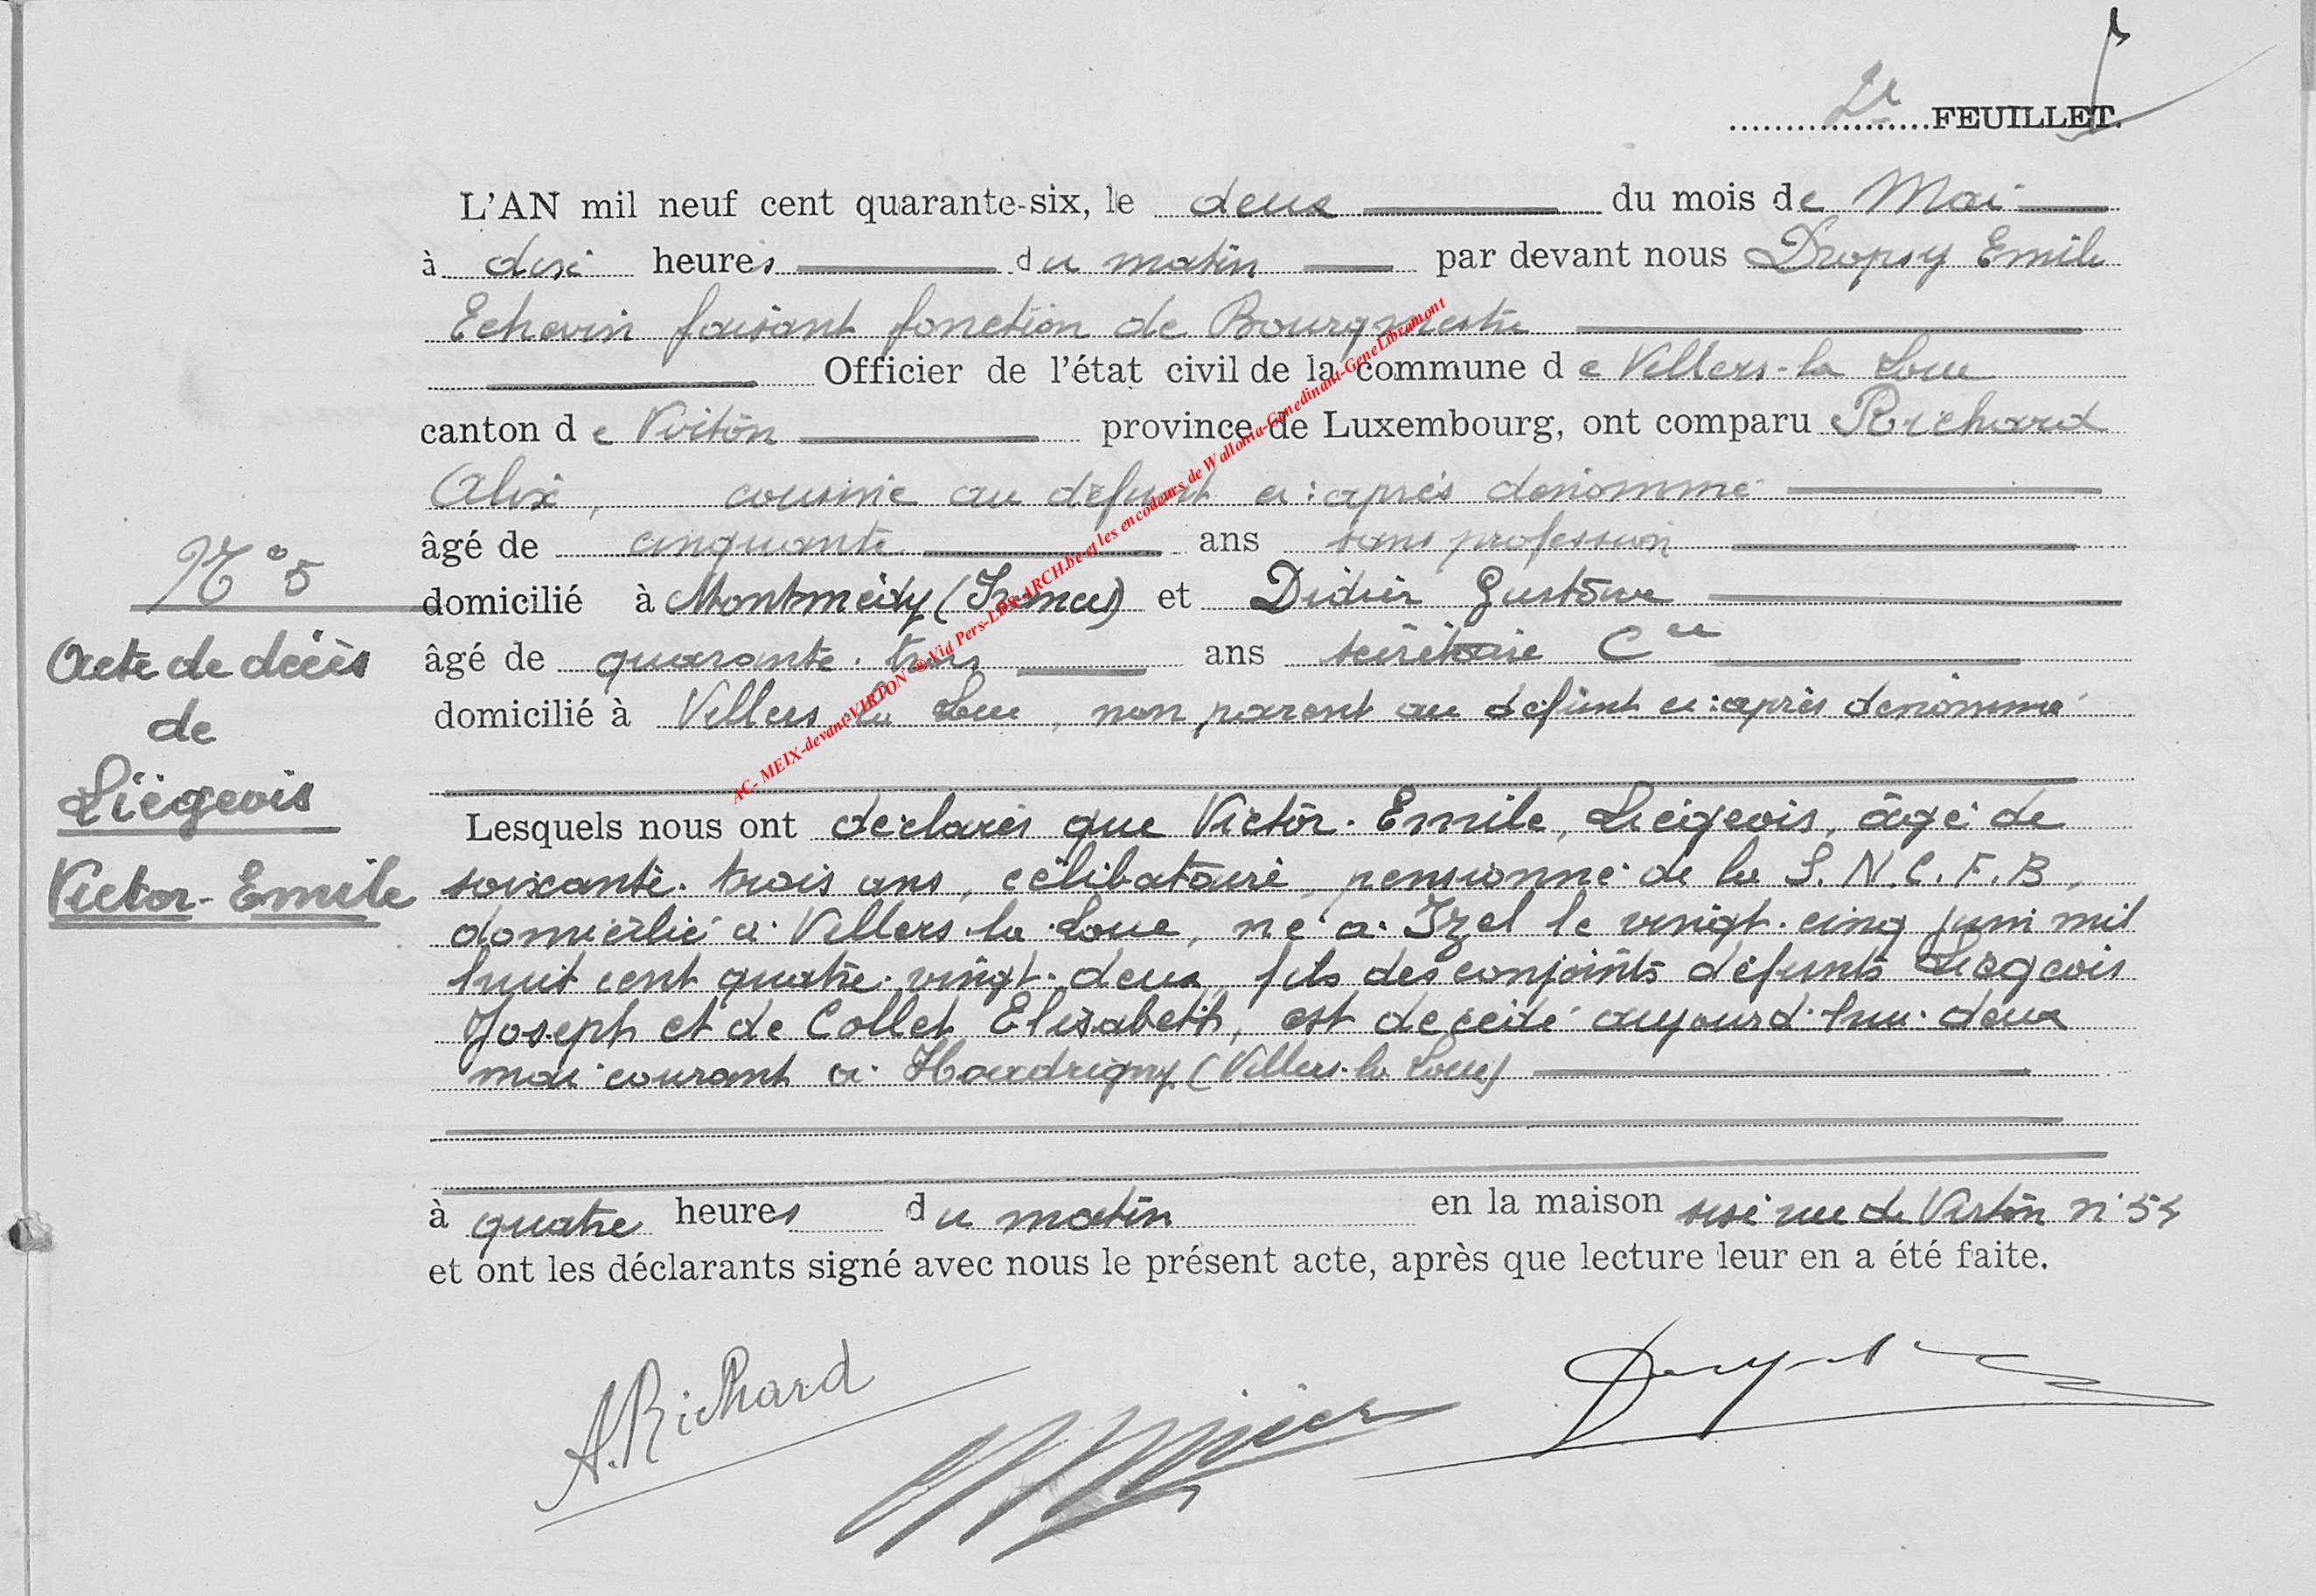 2e FEUILLET.
L'AN mil neuf cent quarante-six, le deux du mois de Mai
à dix heures du matin par devant nous Dropsy Emile
Echevin faisant fonction de Bourgmestre
Officier de l'état civil de la commune de Villers-la Loue
canton de Virton province de Luxembourg, ont comparu Richard
Alix, cousine au défunt ci-après dénommé
âgé de cinquante ans sans profession
domicilié à Montmédy (France) et Didier Gustave
âgé de quarante-trois ans secrétaire Cal
domicilié à Villers-la Loue, non parent au défunt ci-après dénommé
Lesquels nous ont déclaré que Victor-Emile, Liégeois, âgé de
soixante-trois ans, célibataire, pensionné de la S.N.C.F.B,
domicilié à Villers-la-Loue, né à Izel le vingt-cinq juin mil
huit cent quatre-vingt-deux, fils des conjoints défunts Liégeois
Joseph et de Collet Elisabeth, est décédé aujourd'hui deux
mai courant à Houdrigny (Villers-la Loue)
à quatre heures du matin en la maison sise rue de Virton n° 54
et ont les déclarants signé avec nous le présent acte, après que lecture leur en a été faite.
N° 5
Acte de décès
de
Liégeois
Victor-Emile
A. Richard
Didier
Dropsy
AC- MEIX-devant-VIRTON © Via Pers-LDS-ARCH.be et les encodeurs de Wallonia-Genedinant-GeneLibramont